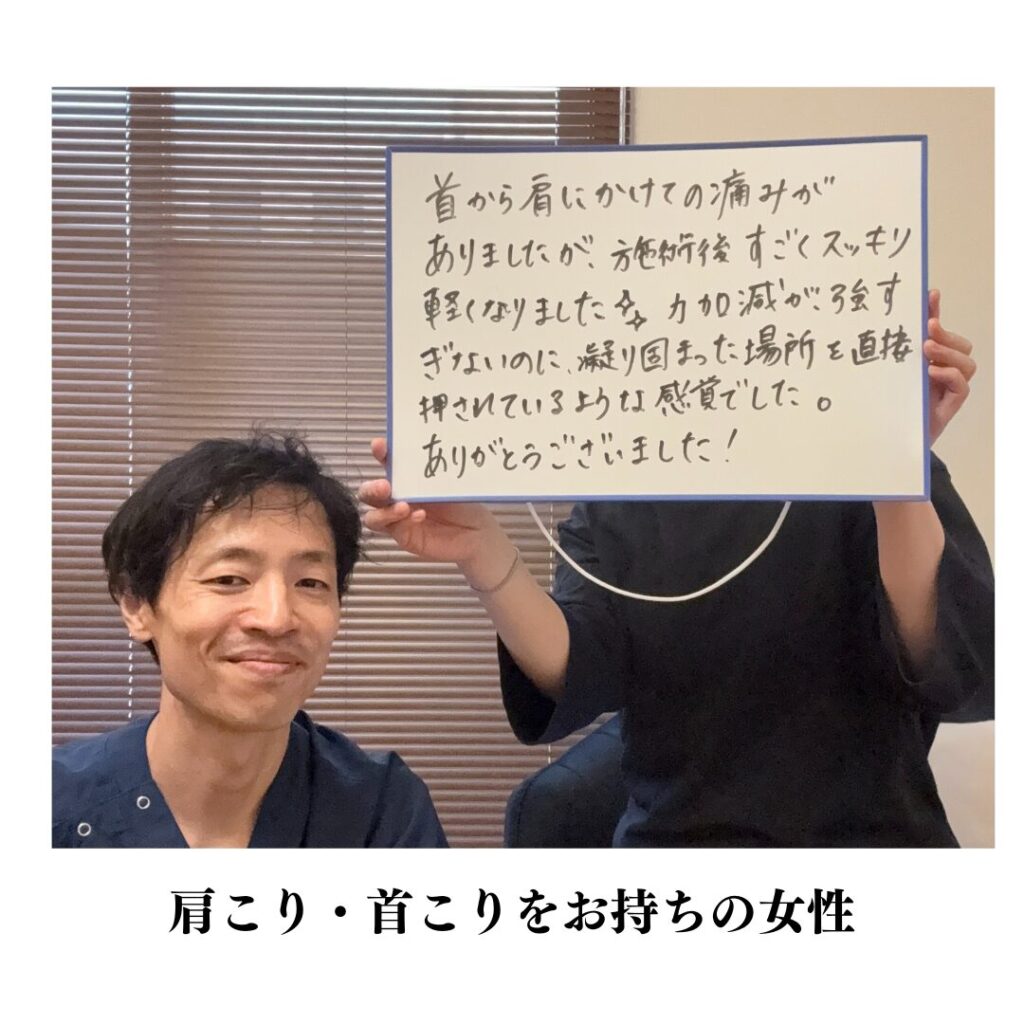 首から肩にかけての痛みが
ありましたが、施術後すごくスッキリ
軽くなりました✨ 力加減が、強す
ぎないのに、凝り固まった場所を直接
押されているような感覚でした。
ありがとうございました！
肩こり・首こりをお持ちの女性